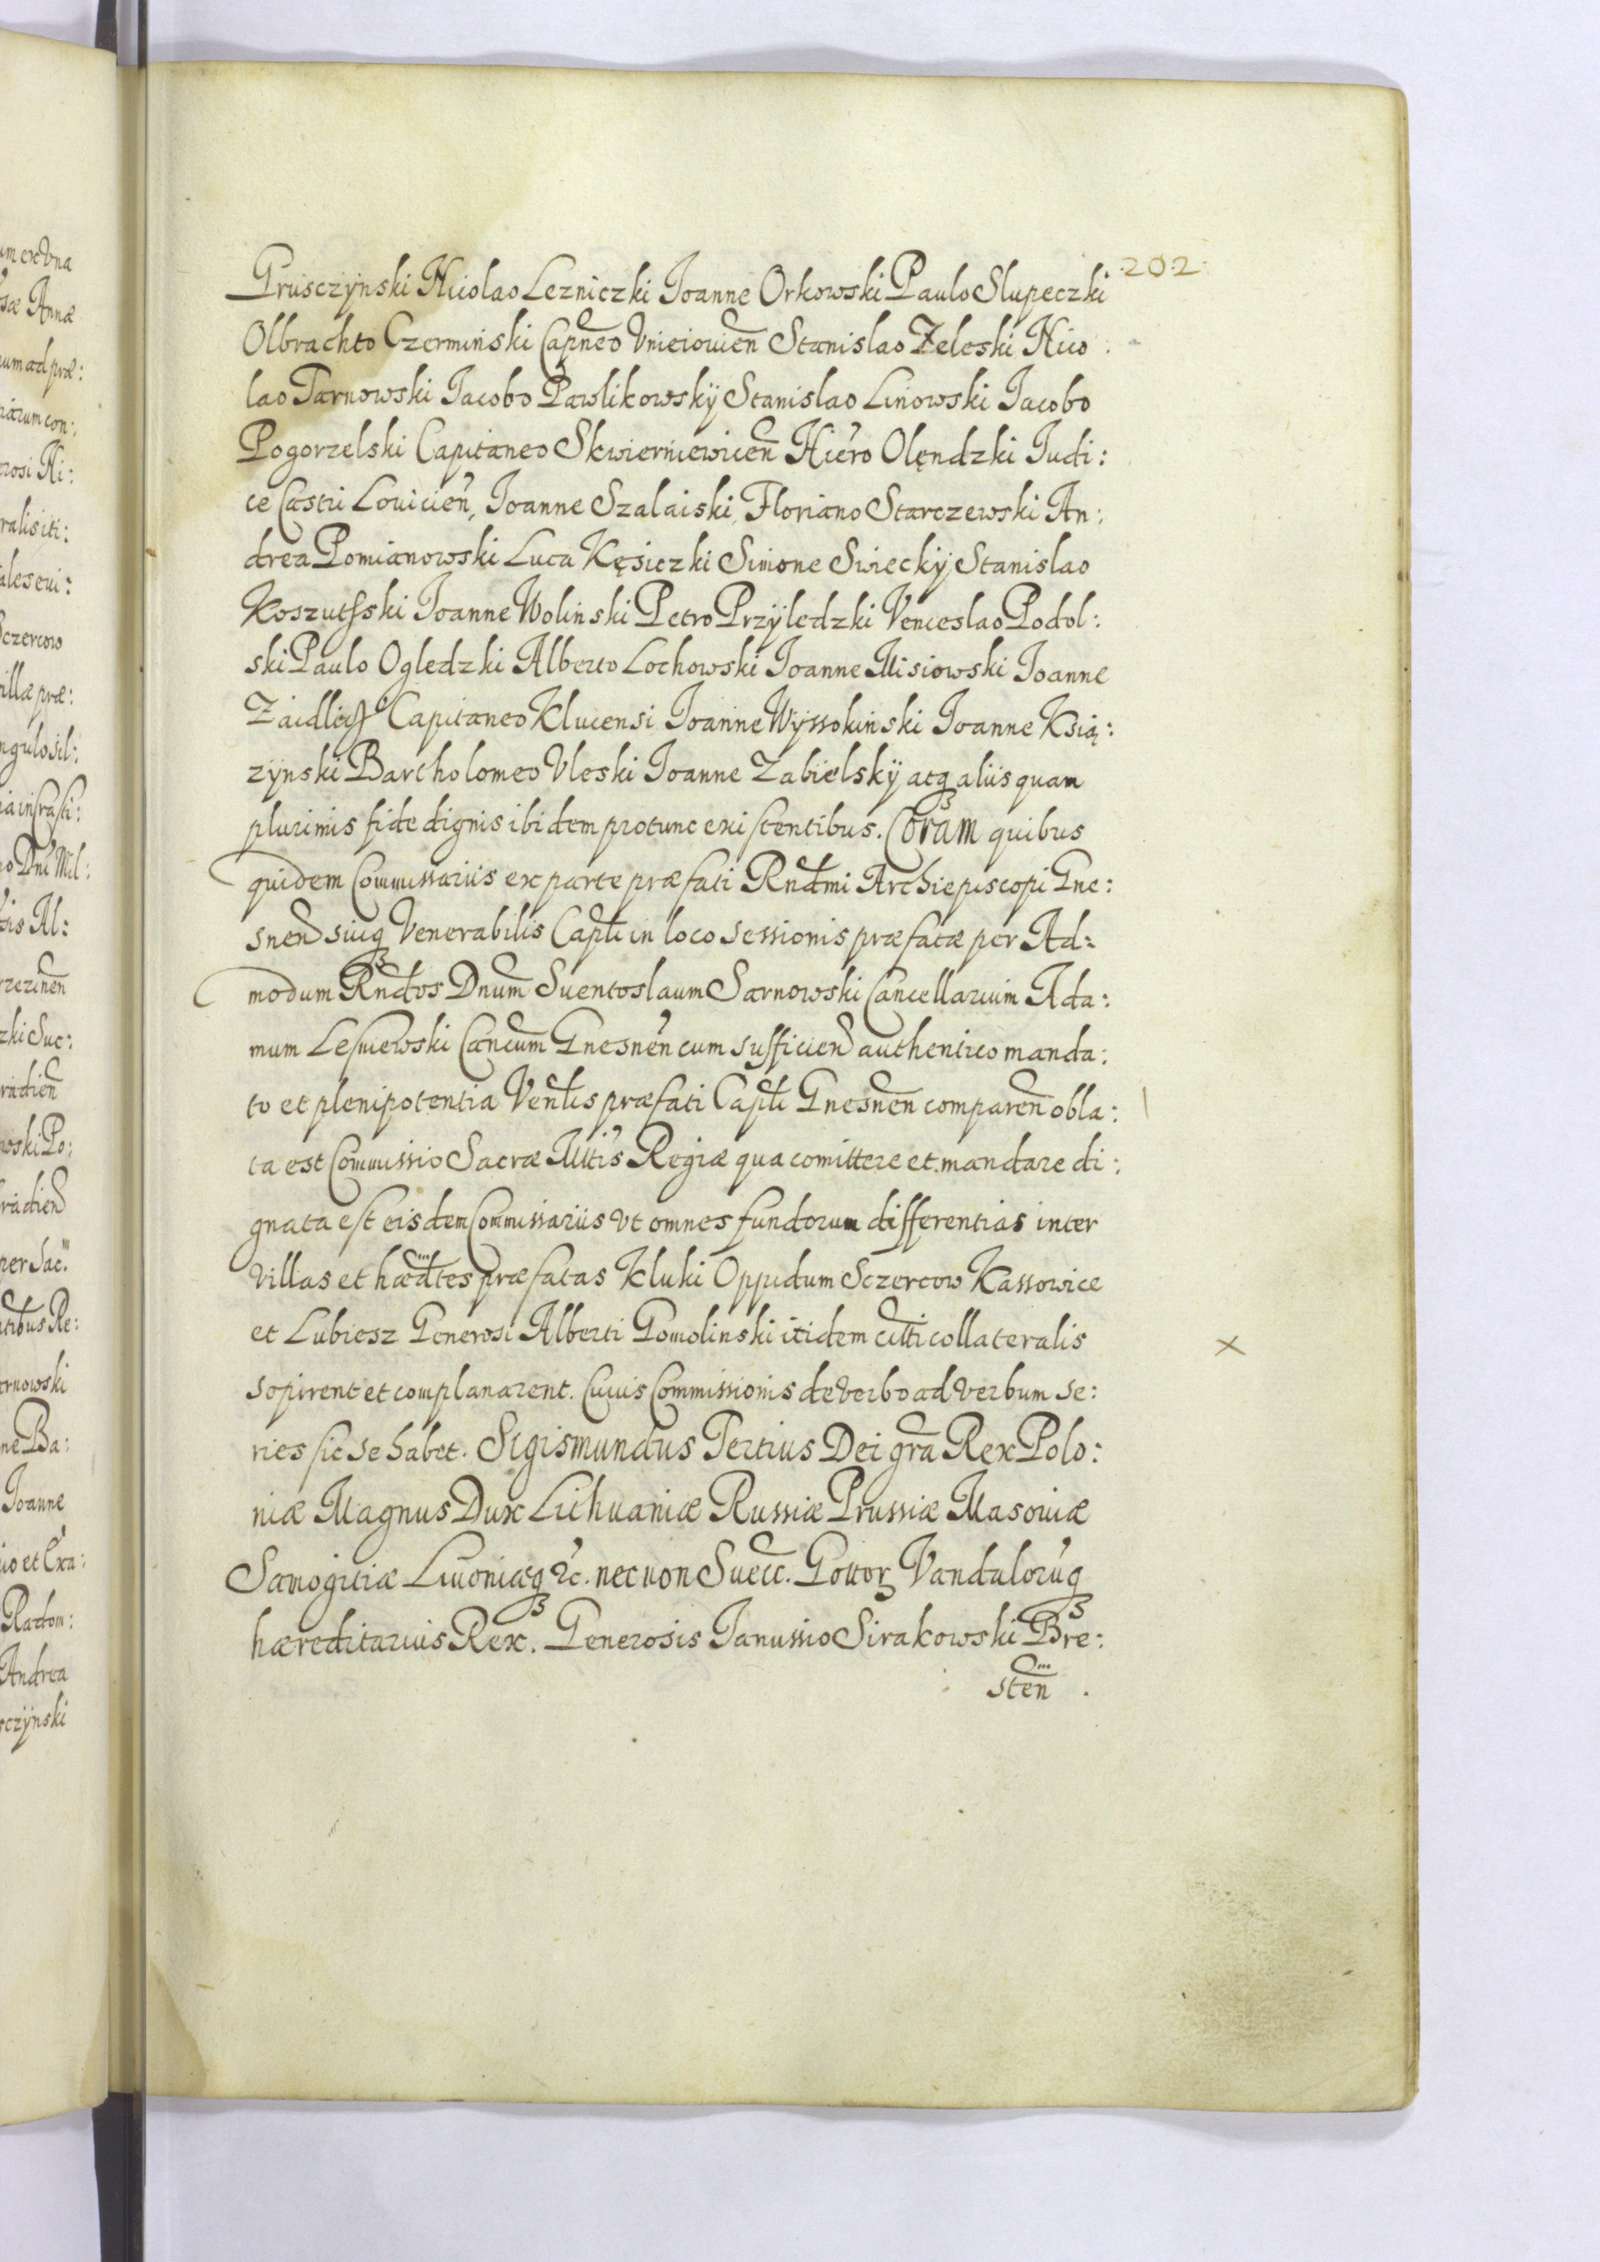 202
Grusczÿnski Nicolao Lezniczki Joanne Orkowski Paulo Slupeczki
Olbrachto Czermiński Capneo Vnieiovien Stanislao Zeleski Nico
lao Tarnowski Jacobo Pawlikowskÿ Stanislao Linowski Jacobo
Pogorzelski Capitaneo Skwierniewicen Hiero Olęndzki Judi:
ce Castri Lovicien, Joanne Szalaiski, Floriano Starczewski An:
drea Pomianowski Luca Kęsiczki Simone Swieckÿ Stanislao
Koszutski Joanne Wolinski Petro Przÿledzki Venceslao Podol:
ski Paulo Ogledzki Alberto Lochowski Joanne Misiowski Joanne
Zaidlicz Capitaneo Klucensi Joanne Wÿssokinski Joanne Ksią:
zÿnski Bartholomeo Vleski Joanne Zabielskÿ atq aliis quam
plurimis fide dignis ibidem protunc existentibus. Coram quibus
quidem Commissariis ex parte præfati Rndmi Archiepiscopi Gne:
snen suiq Venerabilis Capli in loco sessionis præfatæ per Ad:
modum Rndos Dnum Suentoslaum Sarnowski Cancellarium Ada:
mum Lesniewski Cancum Gnesnen cum sufficien authentico manda:
to et plenipotentia Venlis præfati Capli Gnesnen comparen obla:
ta est Commissio Sacræ Mttis Regiæ qua comittere et mandare di:
gnata est eisdem Commissariis vt omnes fundorum differentias inter
villas et hædtes præfatas Kluki Oppidum Sczercow Kassowice
et Lubiesz Generosi Alberti Gomolinski itidem citti collateralis
sopirent et complanarent. Cuius Commissionis de verbo ad verbum se:
ries sic se habet. Sigismundus Tertius Dei gra Rex Polo:
niæ Magnus Dux Lithuaniæ Russiæ Prussiæ Masoviæ
Samogitiæ Livoniæq &c. nec non Suecc. Gottor Vandaloruq
hæreditarius Rex. Generosis Janussio Sirakowski Bre:
sten